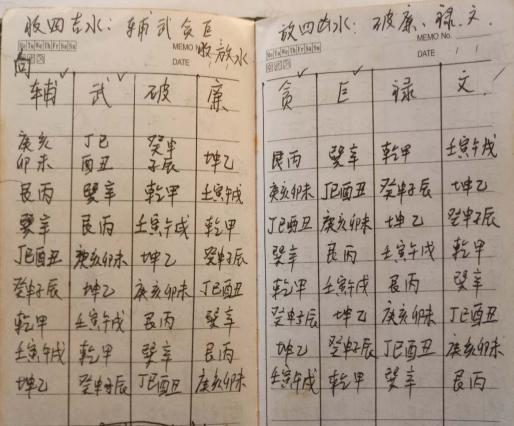 收四吉水：辅武贪巨
收放水
Mo Tu We Th Fr Sa Su
MEMO No.
DATE
向
辅 武 破 廉
庚亥 丁巳 癸申
卯未 酉丑 子辰 坤乙
艮丙 巽辛 乾甲 壬寅午戌
巽辛 艮丙 壬寅午戌 乾甲
丁巳酉丑 庚亥卯未 坤乙 癸申子辰
癸申子辰 坤乙 庚亥卯未 丁巳酉丑
乾甲 壬寅午戌 艮丙 巽辛
壬寅午戌 乾甲 巽辛 艮丙
坤乙 癸申子辰 丁巳酉丑 庚亥卯未
放四凶水：破廉、禄、文.
Mo Tu We Th Fr Sa Su
MEMO No.
DATE / /
贪 巨 禄 文
艮丙 巽辛 乾甲 壬寅午戌
庚亥卯未 丁巳酉丑 癸申子辰 坤乙
丁巳酉丑 庚亥卯未 坤乙 癸申子辰
巽辛 艮丙 壬寅午戌 乾甲
乾甲 壬寅午戌 艮丙 巽辛
癸申子辰 坤乙 庚亥卯未 丁巳酉丑
坤乙 癸申子辰 丁巳酉丑 庚亥卯未
壬寅午戌 乾甲 巽辛 艮丙